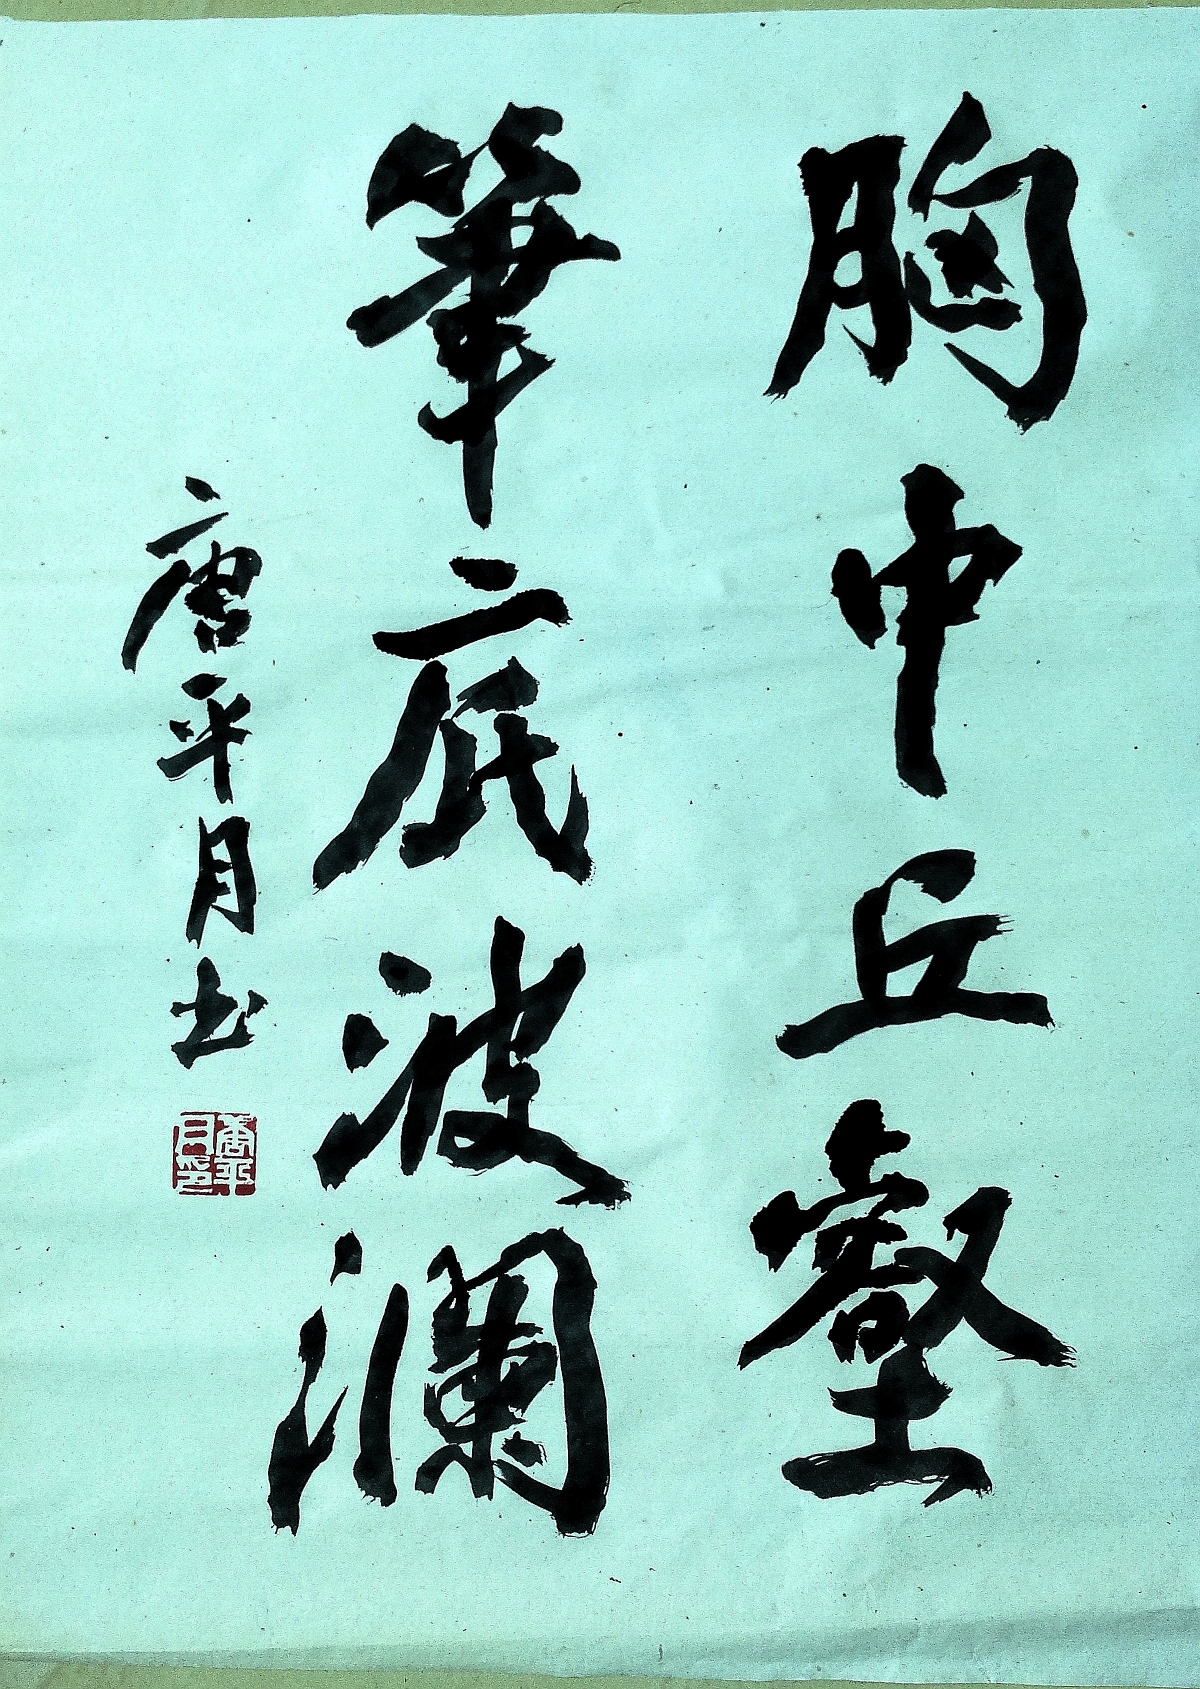 胸中丘壑
筆底波瀾
唐平月书
唐平月印